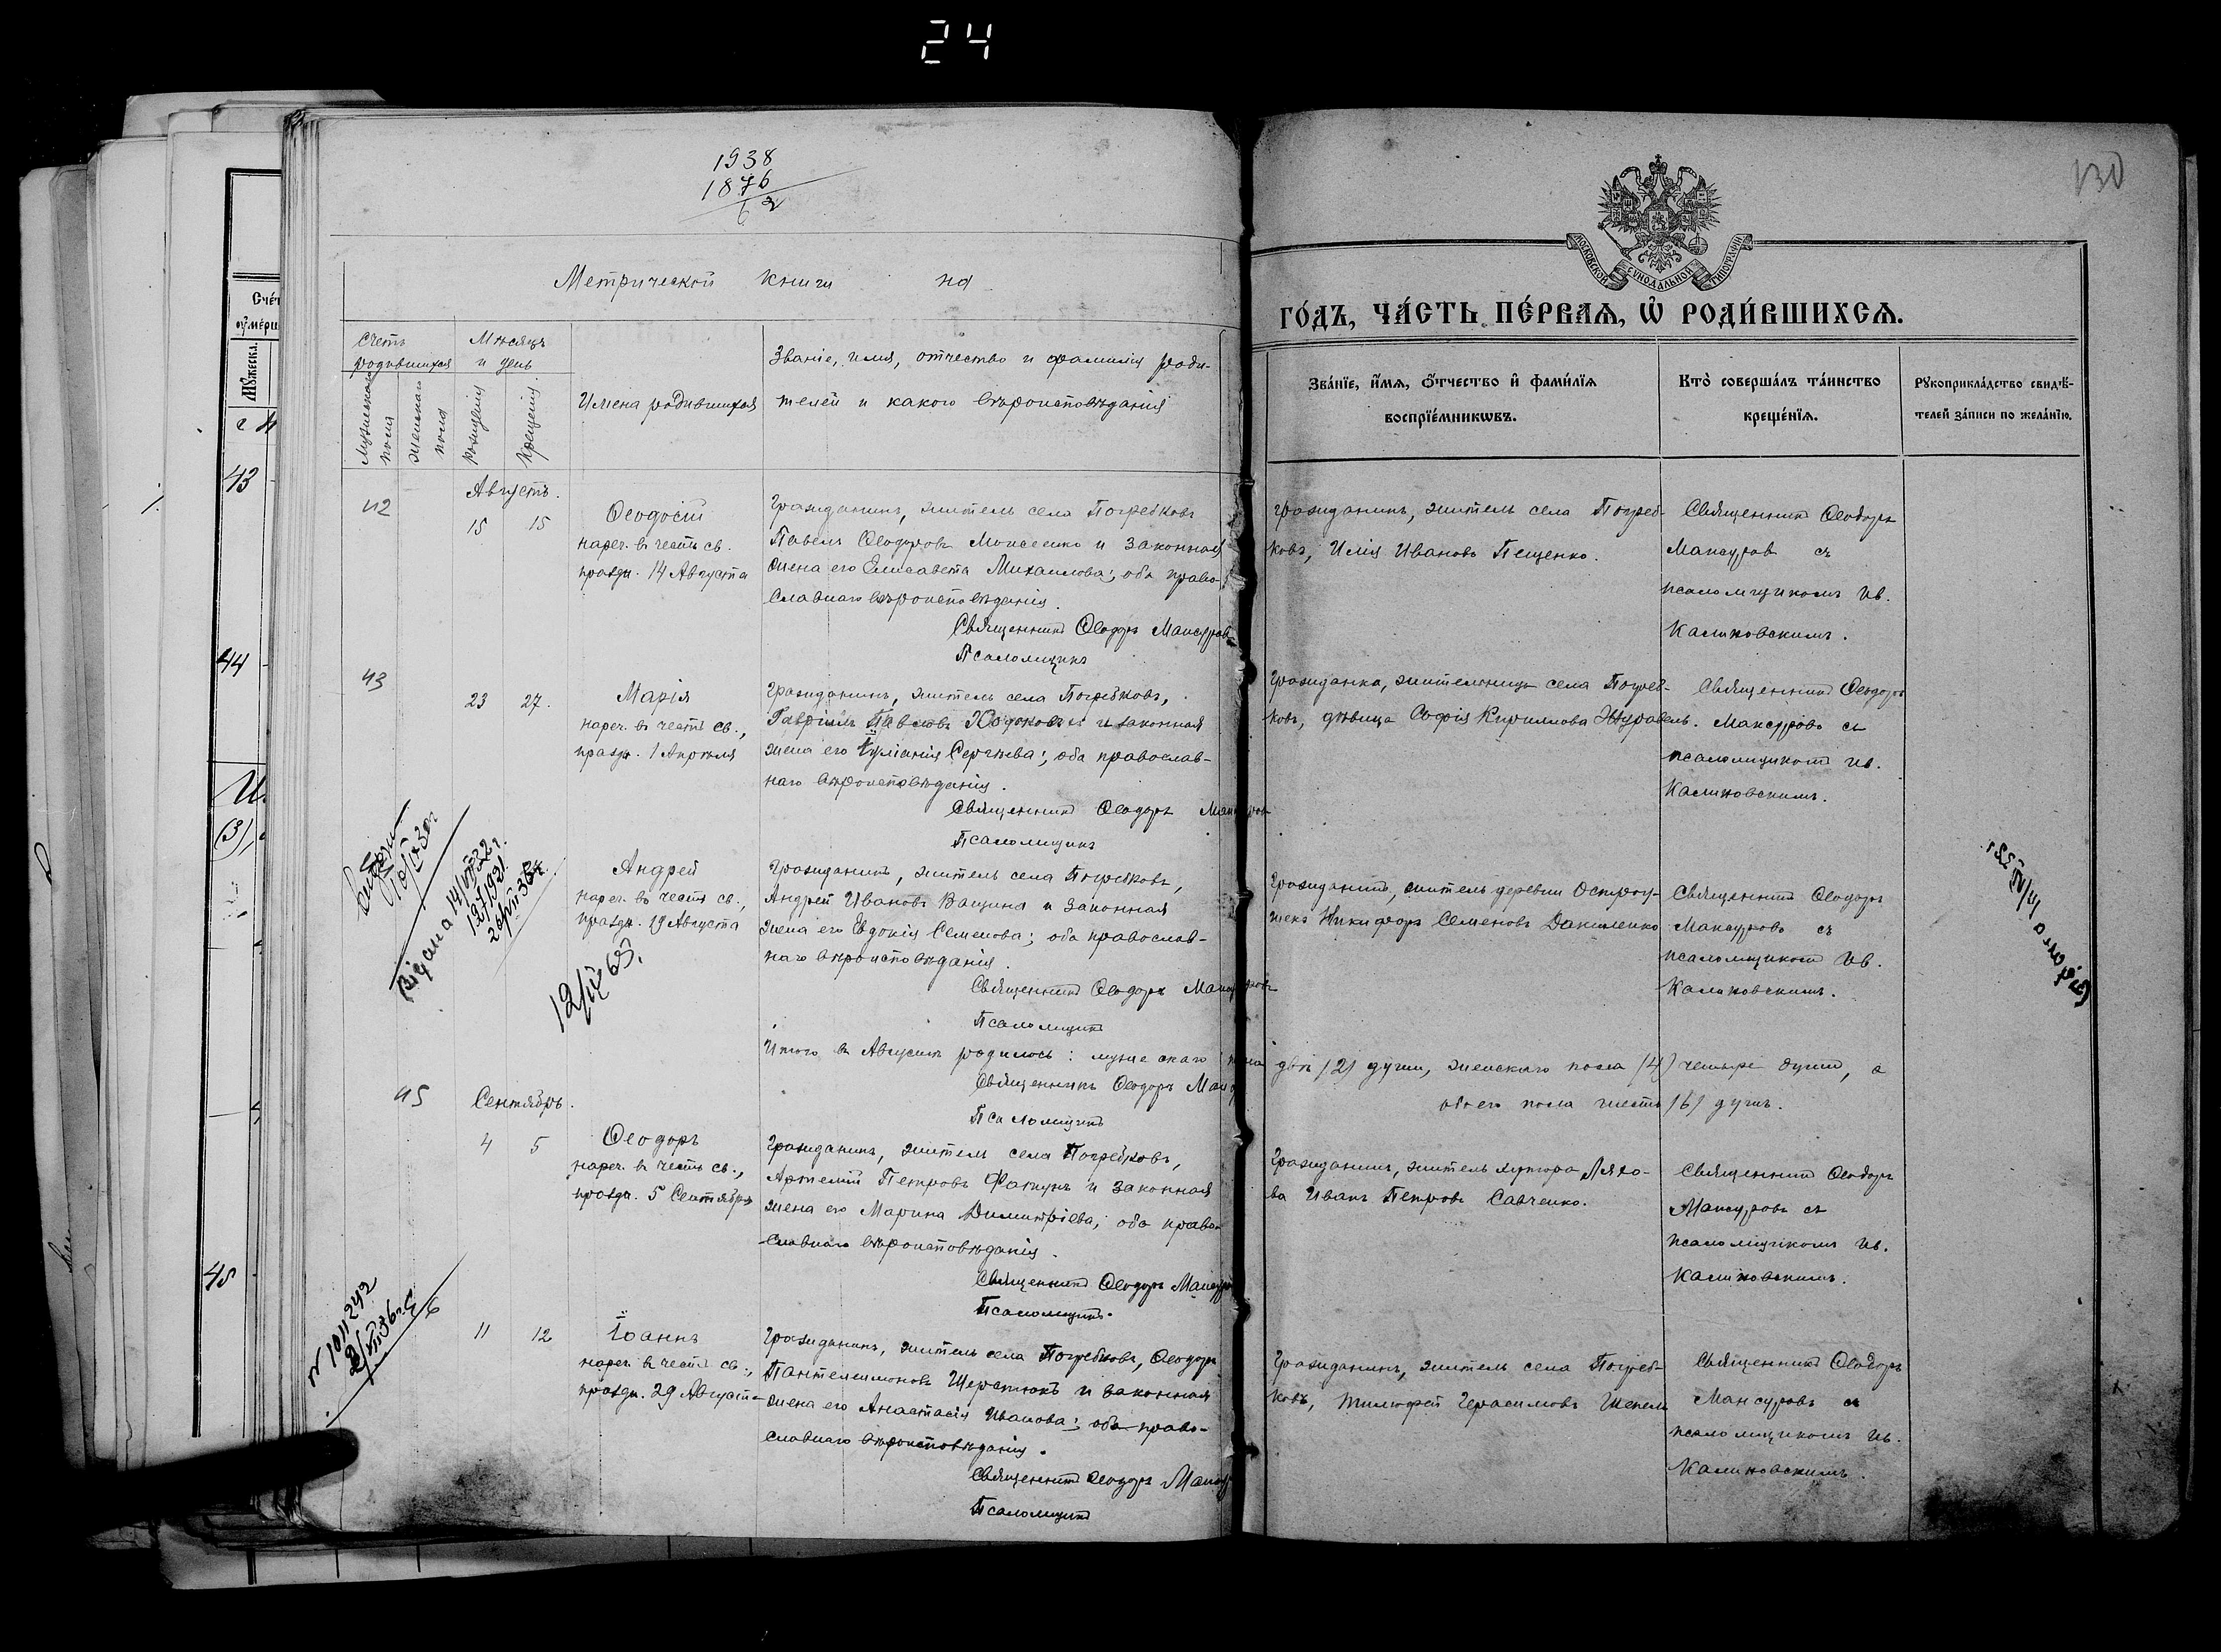 24
1938
1876
62
130
Метрической книги на
МОСКОВСКОЙ СѴНОДАЛЬНОЙ ТИПОГРАФІИ
ГО́ДЪ, ЧА́СТЬ ПЕ́РВАѦ, Ѡ҆ РОДИ́ВШИХСѦ.
Счетъ родившихся
Мужескаго пола
Женскаго пола
Мѣсяцъ и день
Рожденія
Крещенія
Имена родившихся
Званіе, имя, отчество и фамилія роди-
телей и какого вѣроисповѣданія
Зва́нїе, и҆́мѧ, ѻ҆́тчество и҆ фами́лїѧ
воспрїе́мникѡвъ.
Кто̀ соверша́лъ та́инство
креще́нїѧ.
Рꙋкоприкла́дство свидѣ́-
телей за́писи по жела́нїю.
42
Августъ.
15 15
Ѳеодосій
нареч. въ честь св.
праздн. 14 Августа
Гражданинъ, житель села Погребковъ
Павелъ Ѳеодоровъ Моисеенко и законная
жена его Елисавета Михаилова; оба право-
славнаго вѣроисповѣданія.
Священникъ Ѳеодоръ Мансуровъ
Псаломщикъ
Гражданинъ, житель села Погреб-
ковъ, Илія Ивановъ Пещенко.
Священникъ Ѳеодоръ
Мансуровъ съ
псаломщикомъ Ив.
Калиновскимъ.
43
23 27.
Марія
нареч. въ честь св.,
праздн. 1 Апрѣля
Гражданинъ, житель села Погребковъ,
Гавріилъ Павловъ и законная
жена его Іуліанія Сергѣева; оба православ-
наго вѣроисповѣданія.
Священникъ Ѳеодоръ Мансуров
Псаломщикъ
Гражданка, жительница села Погреб-
ковъ, дѣвица Софія Кириллова Журавель.
Священникъ Ѳеодоръ
Мансуровъ съ
псаломщикомъ Ив.
Калиновскимъ.
Андрей
нареч. въ честь св.,
праздн. 19 Августа
Гражданинъ, житель села Погребковъ,
Андрей Ивановъ Ващина и законная
жена его Евдокія Семенова; оба православ-
наго вѣроисповѣданія.
Священникъ Ѳеодоръ Мансуровъ
Псаломщикъ
Гражданинъ, житель деревни Остроу-
шекъ Никифоръ Семеновъ Даниленко
Священникъ Ѳеодоръ
Мансуровъ съ
псаломщикомъ Ив.
Калиновскимъ.
Итого въ Августѣ родилось: мужескаго пола двѣ /2/ души, женскаго пола /4/ четыре души, а
обоего пола шесть /6/ душъ.
Священникъ Ѳеодоръ Манс
Псаломщикъ
45
Сентябрь.
4 5
Ѳеодоръ
нареч. въ честь св.,
праздн. 5 Сентября
Гражданинъ, житель села Погребковъ,
Артемій Петровъ и законная
жена его Марина Димитріева; оба право-
славнаго вѣроисповѣданія.
Священникъ Ѳеодоръ Мансур
Псаломщикъ.
Гражданинъ, житель хутора Ляхо-
ва Иванъ Петровъ Савченко.
Священникъ Ѳеодоръ
Мансуровъ съ
псаломщикомъ Ив.
Калиновскимъ.
46
11 12
Іоаннъ
нареч. въ честь св.,
праздн. 29 Августа
Гражданинъ, житель села Погребковъ, Ѳеодоръ
Пантелеимоновъ Шерстюкъ и законная
жена его Анастасія Иванова; оба право-
славнаго вѣроисповѣданія.
Священникъ Ѳеодоръ Мансу
Псаломщикъ
Гражданинъ, житель села Погреб-
ковъ, Тимофей Герасимовъ Шепель
Священникъ Ѳеодоръ
Мансуровъ съ
псаломщикомъ Ив.
Калиновскимъ.
Видана 14/VII 32 г.
12/IX 63.
43
44
45